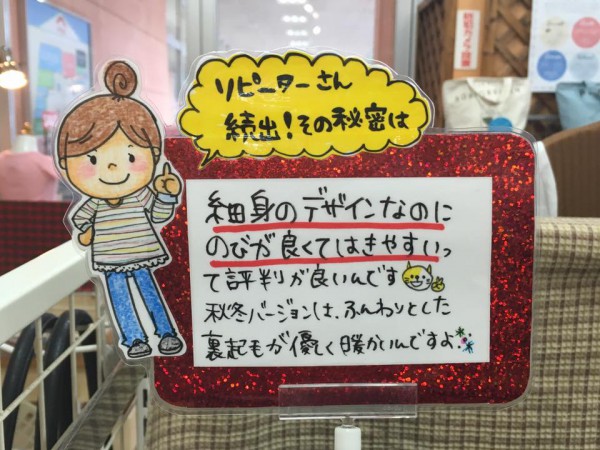 リピーターさん
続出!その秘密は
細身のデザインなのに
のびが良くてはきやすいっ
て評判が良いんです
秋冬バージョンは、ふんわりとした
裏起毛が優しく暖かいんですよ
防犯カメラ設置